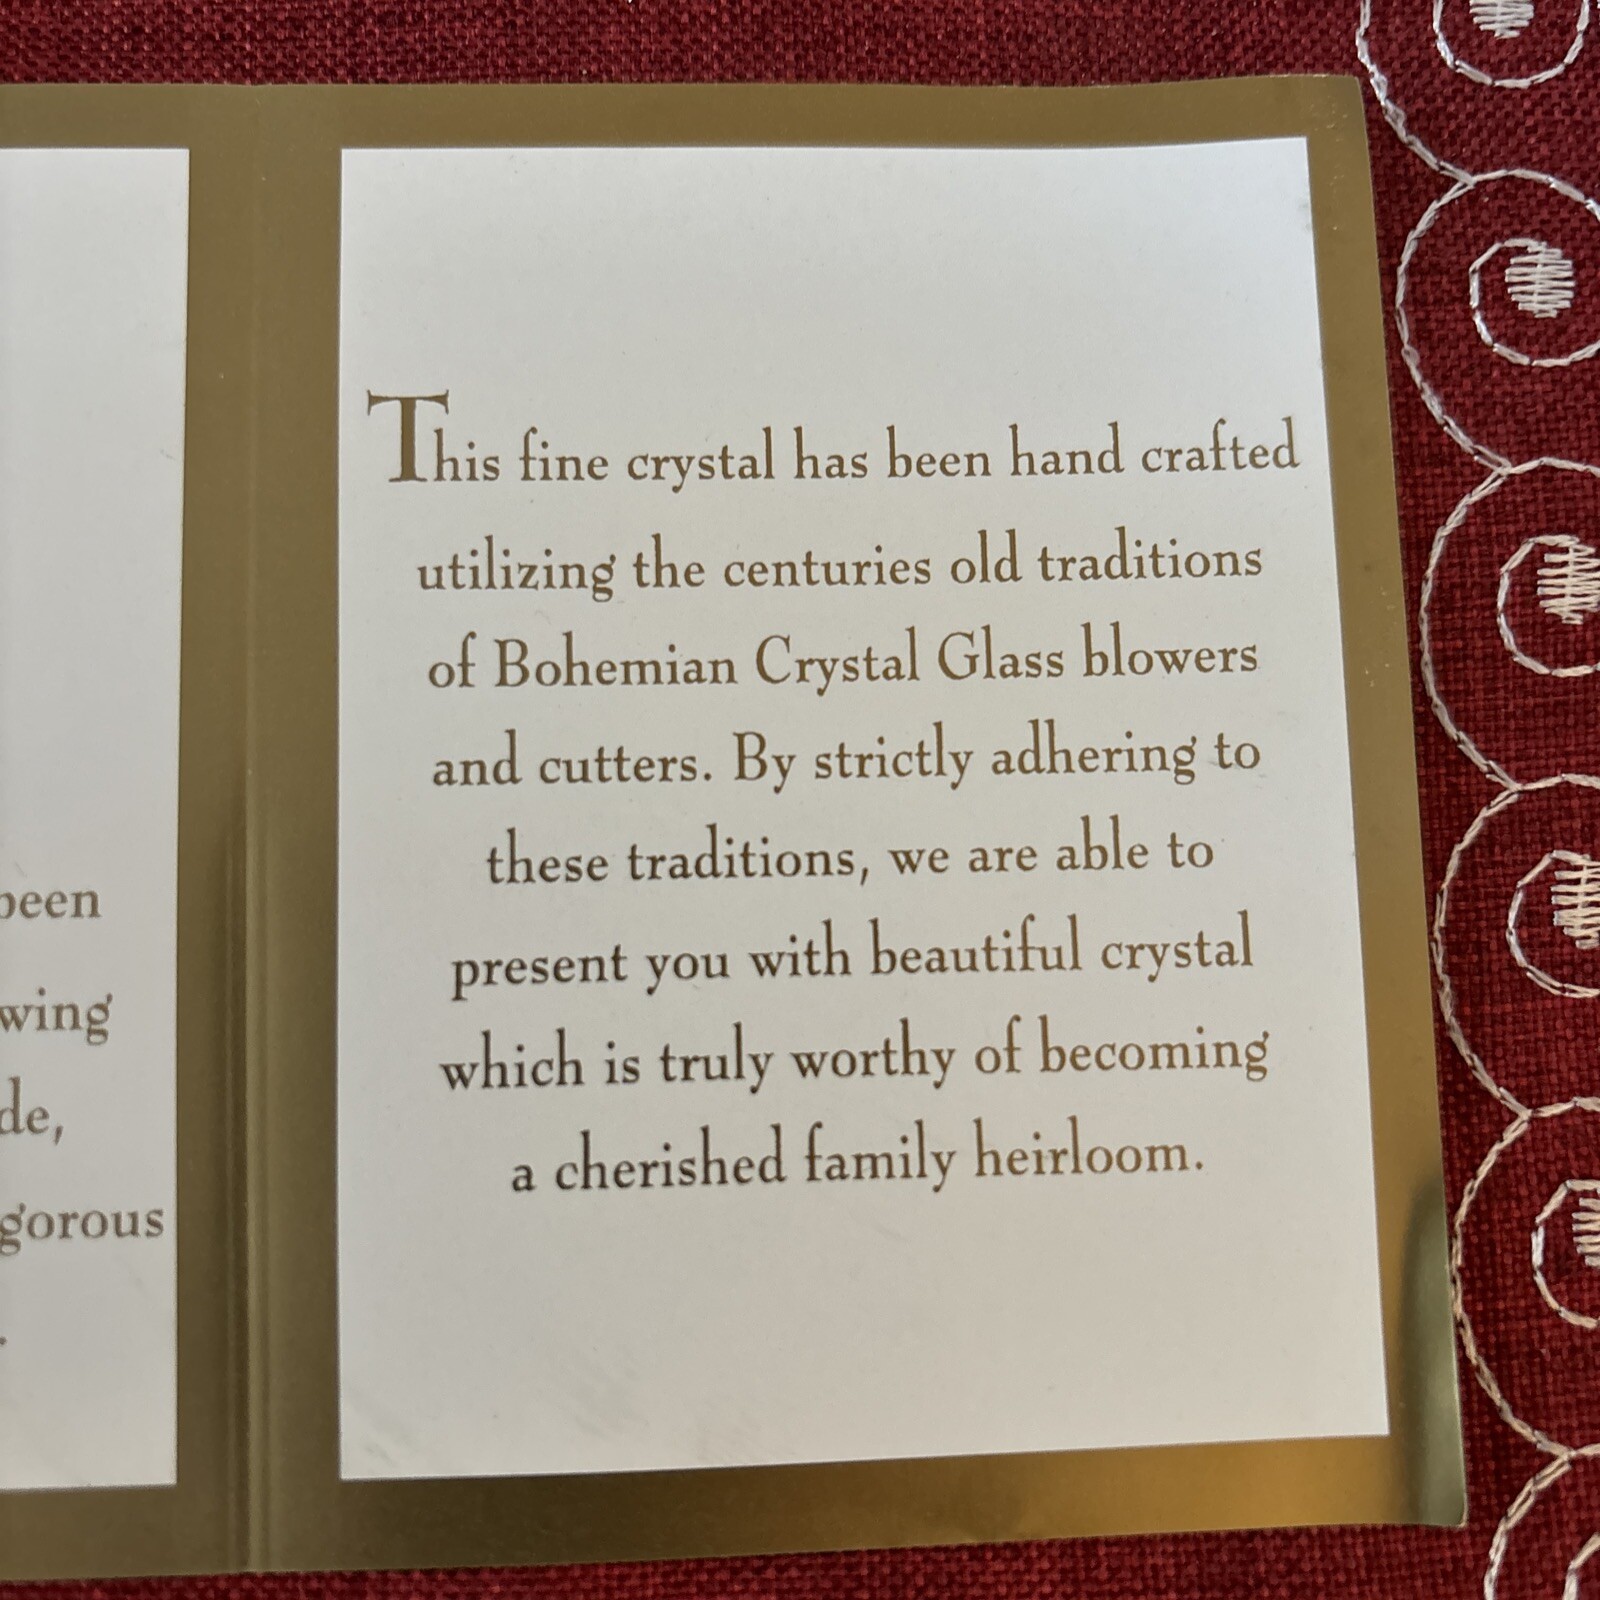 been
wing
de,
gorous
.
This fine crystal has been hand crafted
utilizing the centuries old traditions
of Bohemian Crystal Glass blowers
and cutters. By strictly adhering to
these traditions, we are able to
present you with beautiful crystal
which is truly worthy of becoming
a cherished family heirloom.